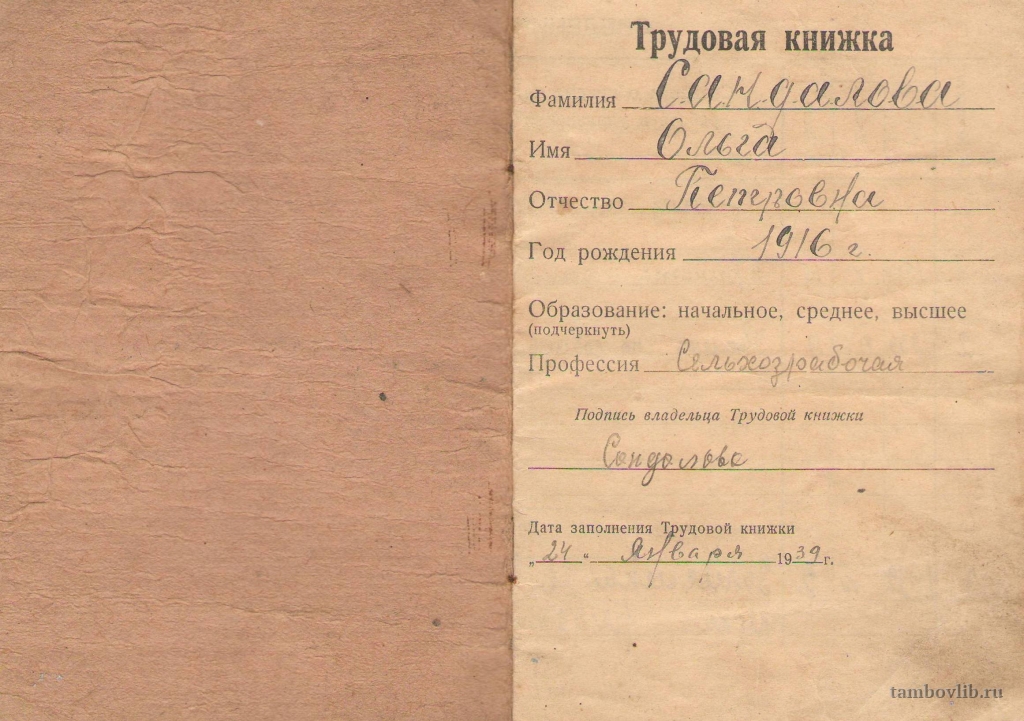 Трудовая книжка
Фамилия Сандалова
Имя Ольга
Отчество Петровна
Год рождения 1916 г.
Образование: начальное, среднее, высшее
(подчеркнуть)
Профессия Сельхозрабочая
Подпись владельца Трудовой книжки
Сандалова
Дата заполнения Трудовой книжки
„24“ января 1939 г.
tambovlib.ru